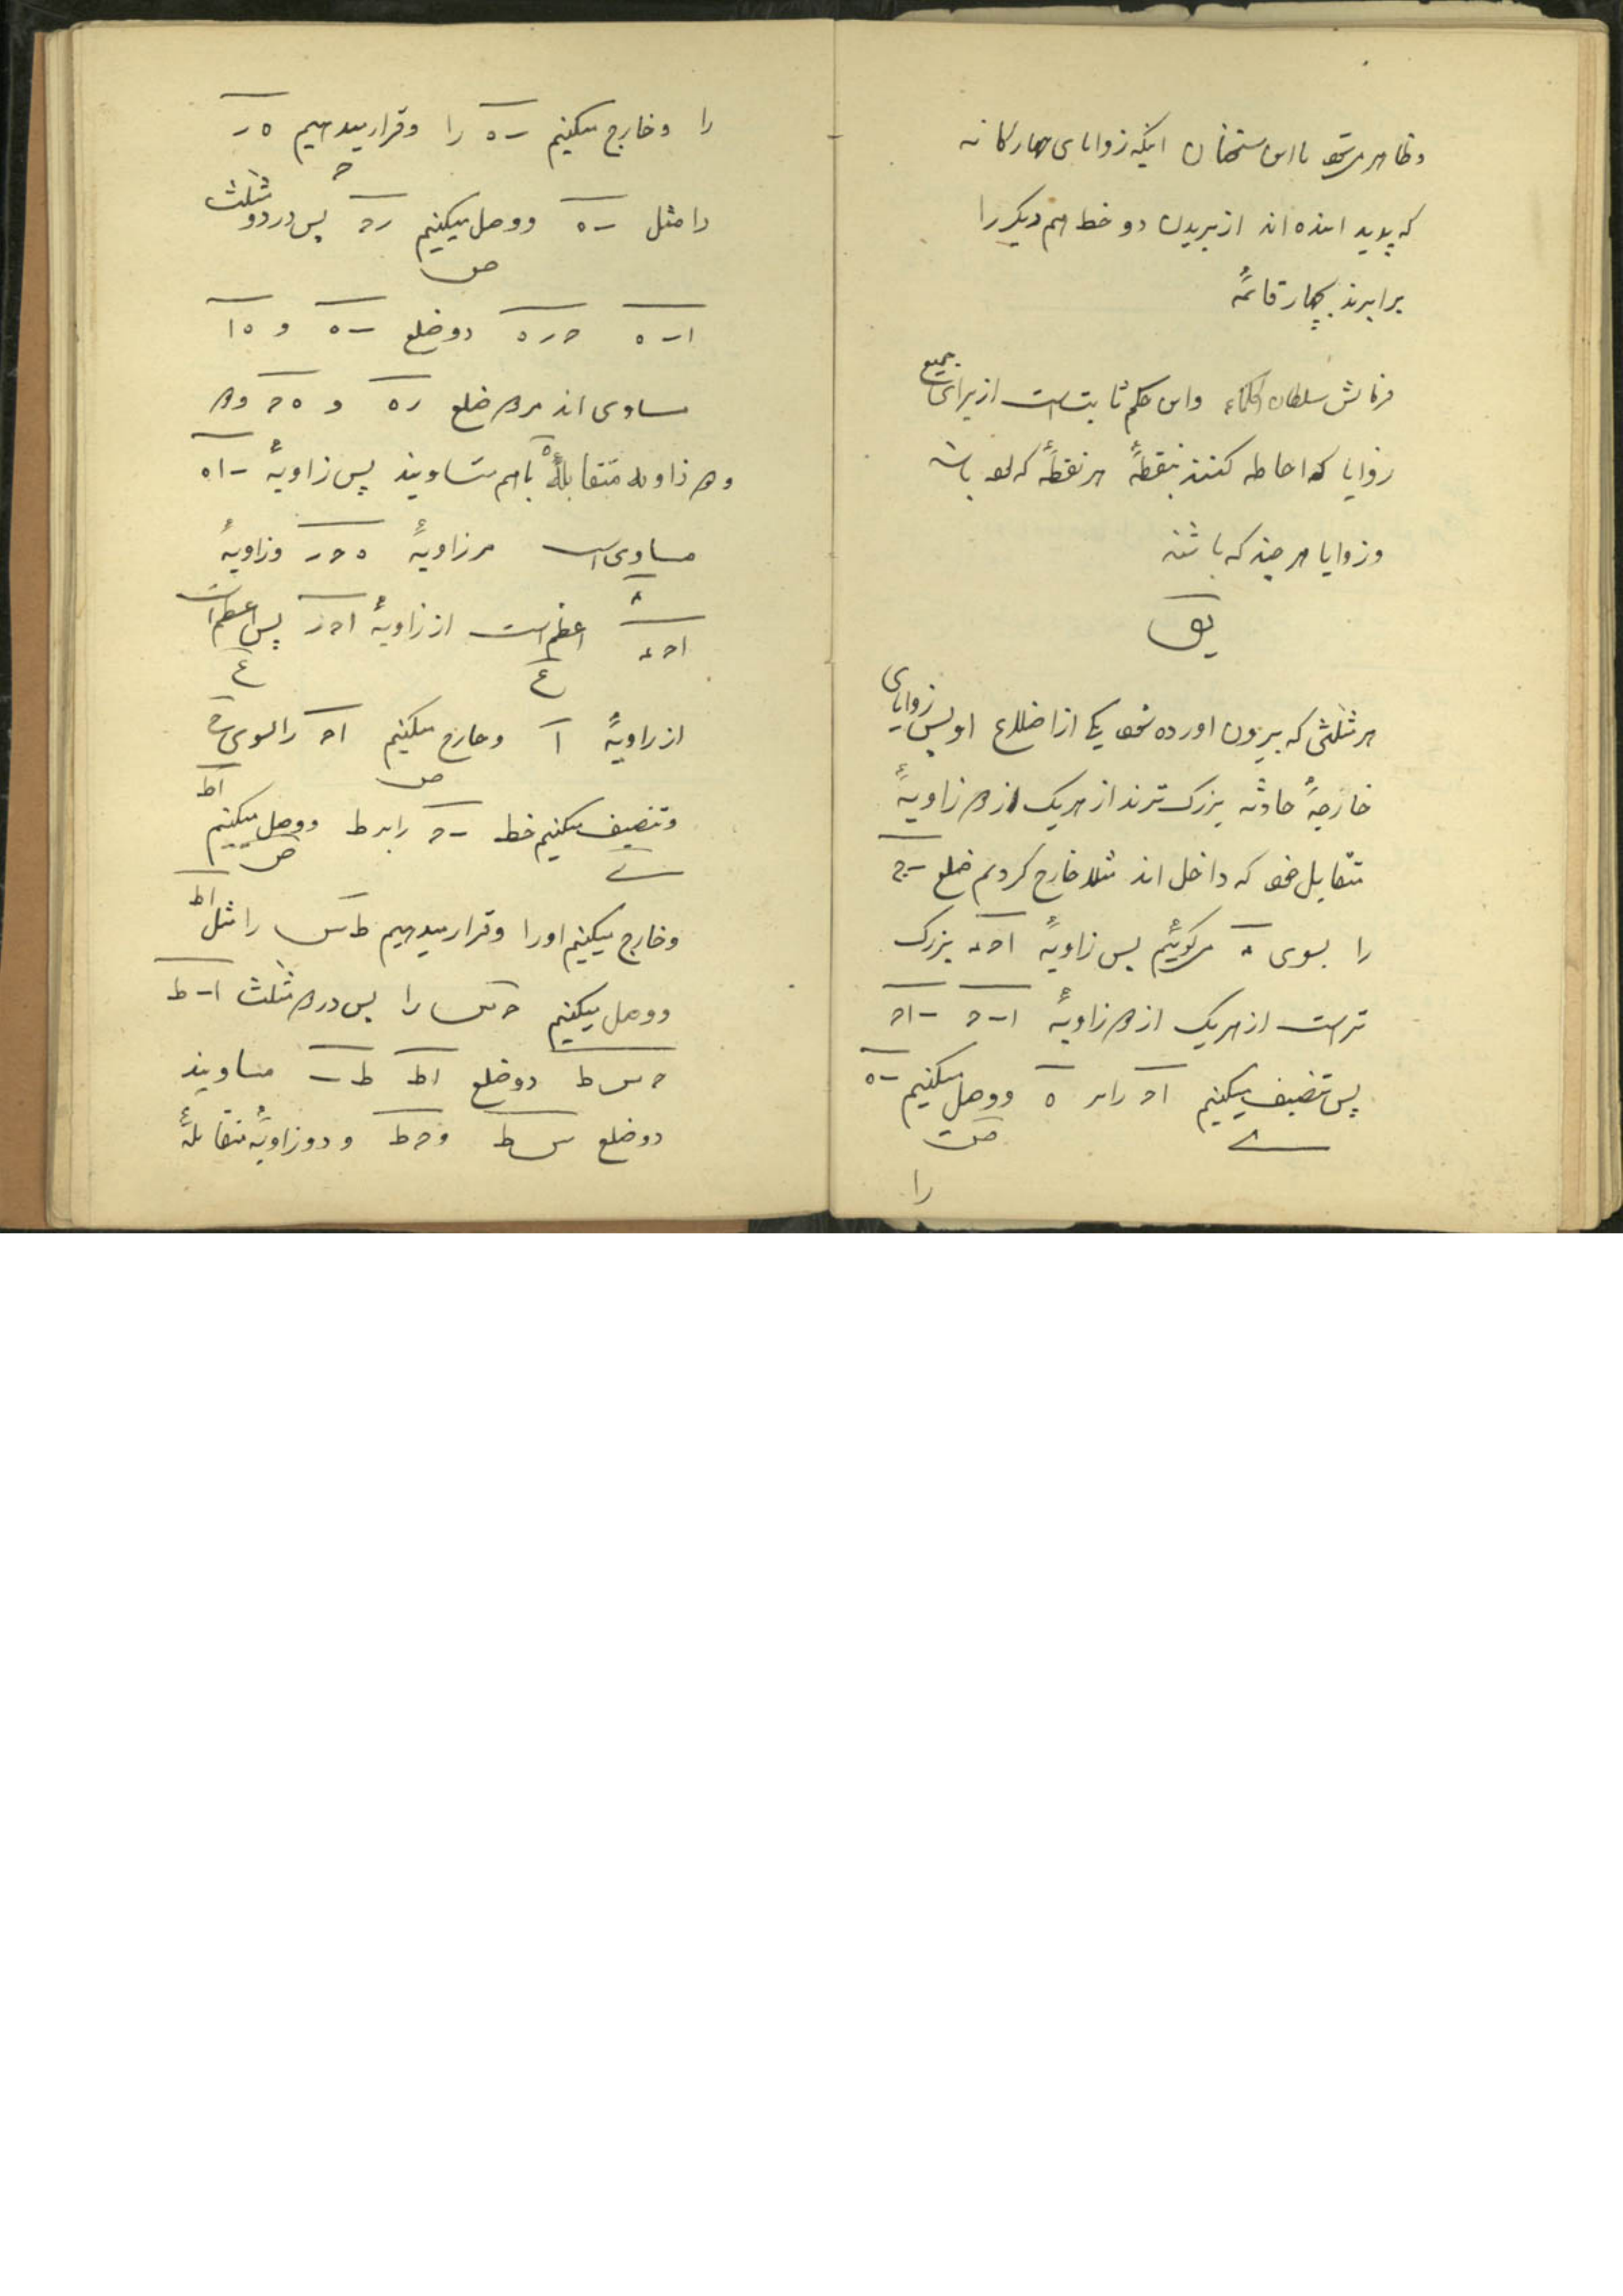 وظاهر میشود با این سخنان اینکه زوایای چهارگانه
که پدید امده اند از بریدن دو خط هم دیگر را
برابرند بچهار قائمه
فرمایش سلطان الحکماء و این حکم ثابت است از برای جمیع
زوایا که احاطه کنند بنقطهٔ هر نقطهٔ که بود باشد
و زوایا هر چند که باشند
یو
هر مثلثی که بیرون اورده شود یکی از اضلاع او پس زوایای
خارجهٔ حادثه بزرک ترند از هر یک از دو زاویهٔ
متقابل خود که داخل اند مثلا خارج کردیم ضلع ب ح
را بسوی ء میگوئیم پس زاویهٔ ا ح ء بزرک
تر است از هر یک از دو زاویهٔ ا ب ح ب ا ح
پس تنصیف میکنیم ا ح را بر ه و وصل میکنیم ب ه
را
را و خارج میکنیم ب ه را و قرار میدهیم ه ر
را مثل ب ه و وصل میکنیم ر ح پس در دو مثلث
ا ب ه ح ر ه دو ضلع ب ه و ه ا
مساوی اند مر دو ضلع ر ه و ه ح و دو
و دو زاویه متقابلهٔ ه با هم متساویند پس زاویهٔ ب ا ه
مساوی است مر زاویهٔ ه ح ر و زاویهٔ
ا ح ء اعظم است از زاویهٔ ا ح ر پس اعظم است
از زاویهٔ ا و خارج میکنیم ا ح را بسوی ع
و تنصیف میکنیم خط ب ح را بر ط و وصل میکنیم ا ط
و خارج میکنیم او را و قرار میدهیم ط س را مثل ا ط
و وصل میکنیم ح س را پس در دو مثلث ا ب ط
ح س ط دو ضلع ا ط ط ب مساویند
دو ضلع س ط و ح ط و دو زاویهٔ متقابلهٔ